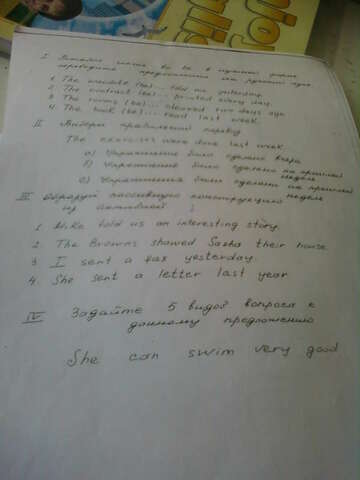 I Вставьте глагол to be в нужной форме
переводите предложения на русский язык
1. The (be)... told us yesterday
2. The contract (be)... printed every day.
3. The rooms (be)... cleaned two days ago
4. The book (be)... read last week.
II Выбери правильный перевод
The exercises were done last week
а) Упражнение было сделано вчера
б) Упражнение было сделано на прошлой
неделе
с) Упражнения были сделаны на прошлой
неделе
III Образуй пассивную конструкцию
из активной
1. Mike told us an interesting story
2. The Browns showed Sasha their house
3 I sent a fax yesterday.
4. She sent a letter last year
IV Задайте 5 видов вопроса к
данному предложению
She can swim very good